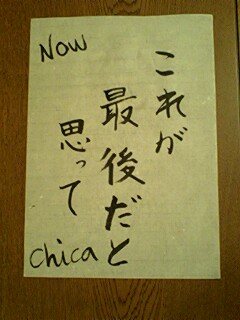 Now
これが
最後だと
思って
chica